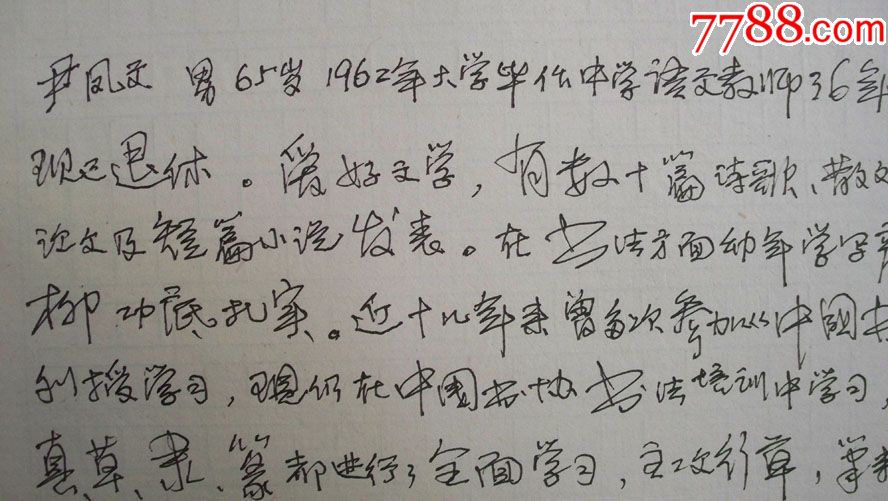 7788.com
尹凤文 男 65岁 1962年大学毕业中学语文教师36年
现已退休。爱好文学，有数十篇诗歌、散文
论文及短篇小说发表。在书法方面幼年学字
柳功底扎实。近十几年来曾多次参加中国书
刊授学习，现仍在中国书协书法培训中学习，
真、草、隶、篆都进行了全面学习，主攻行草，